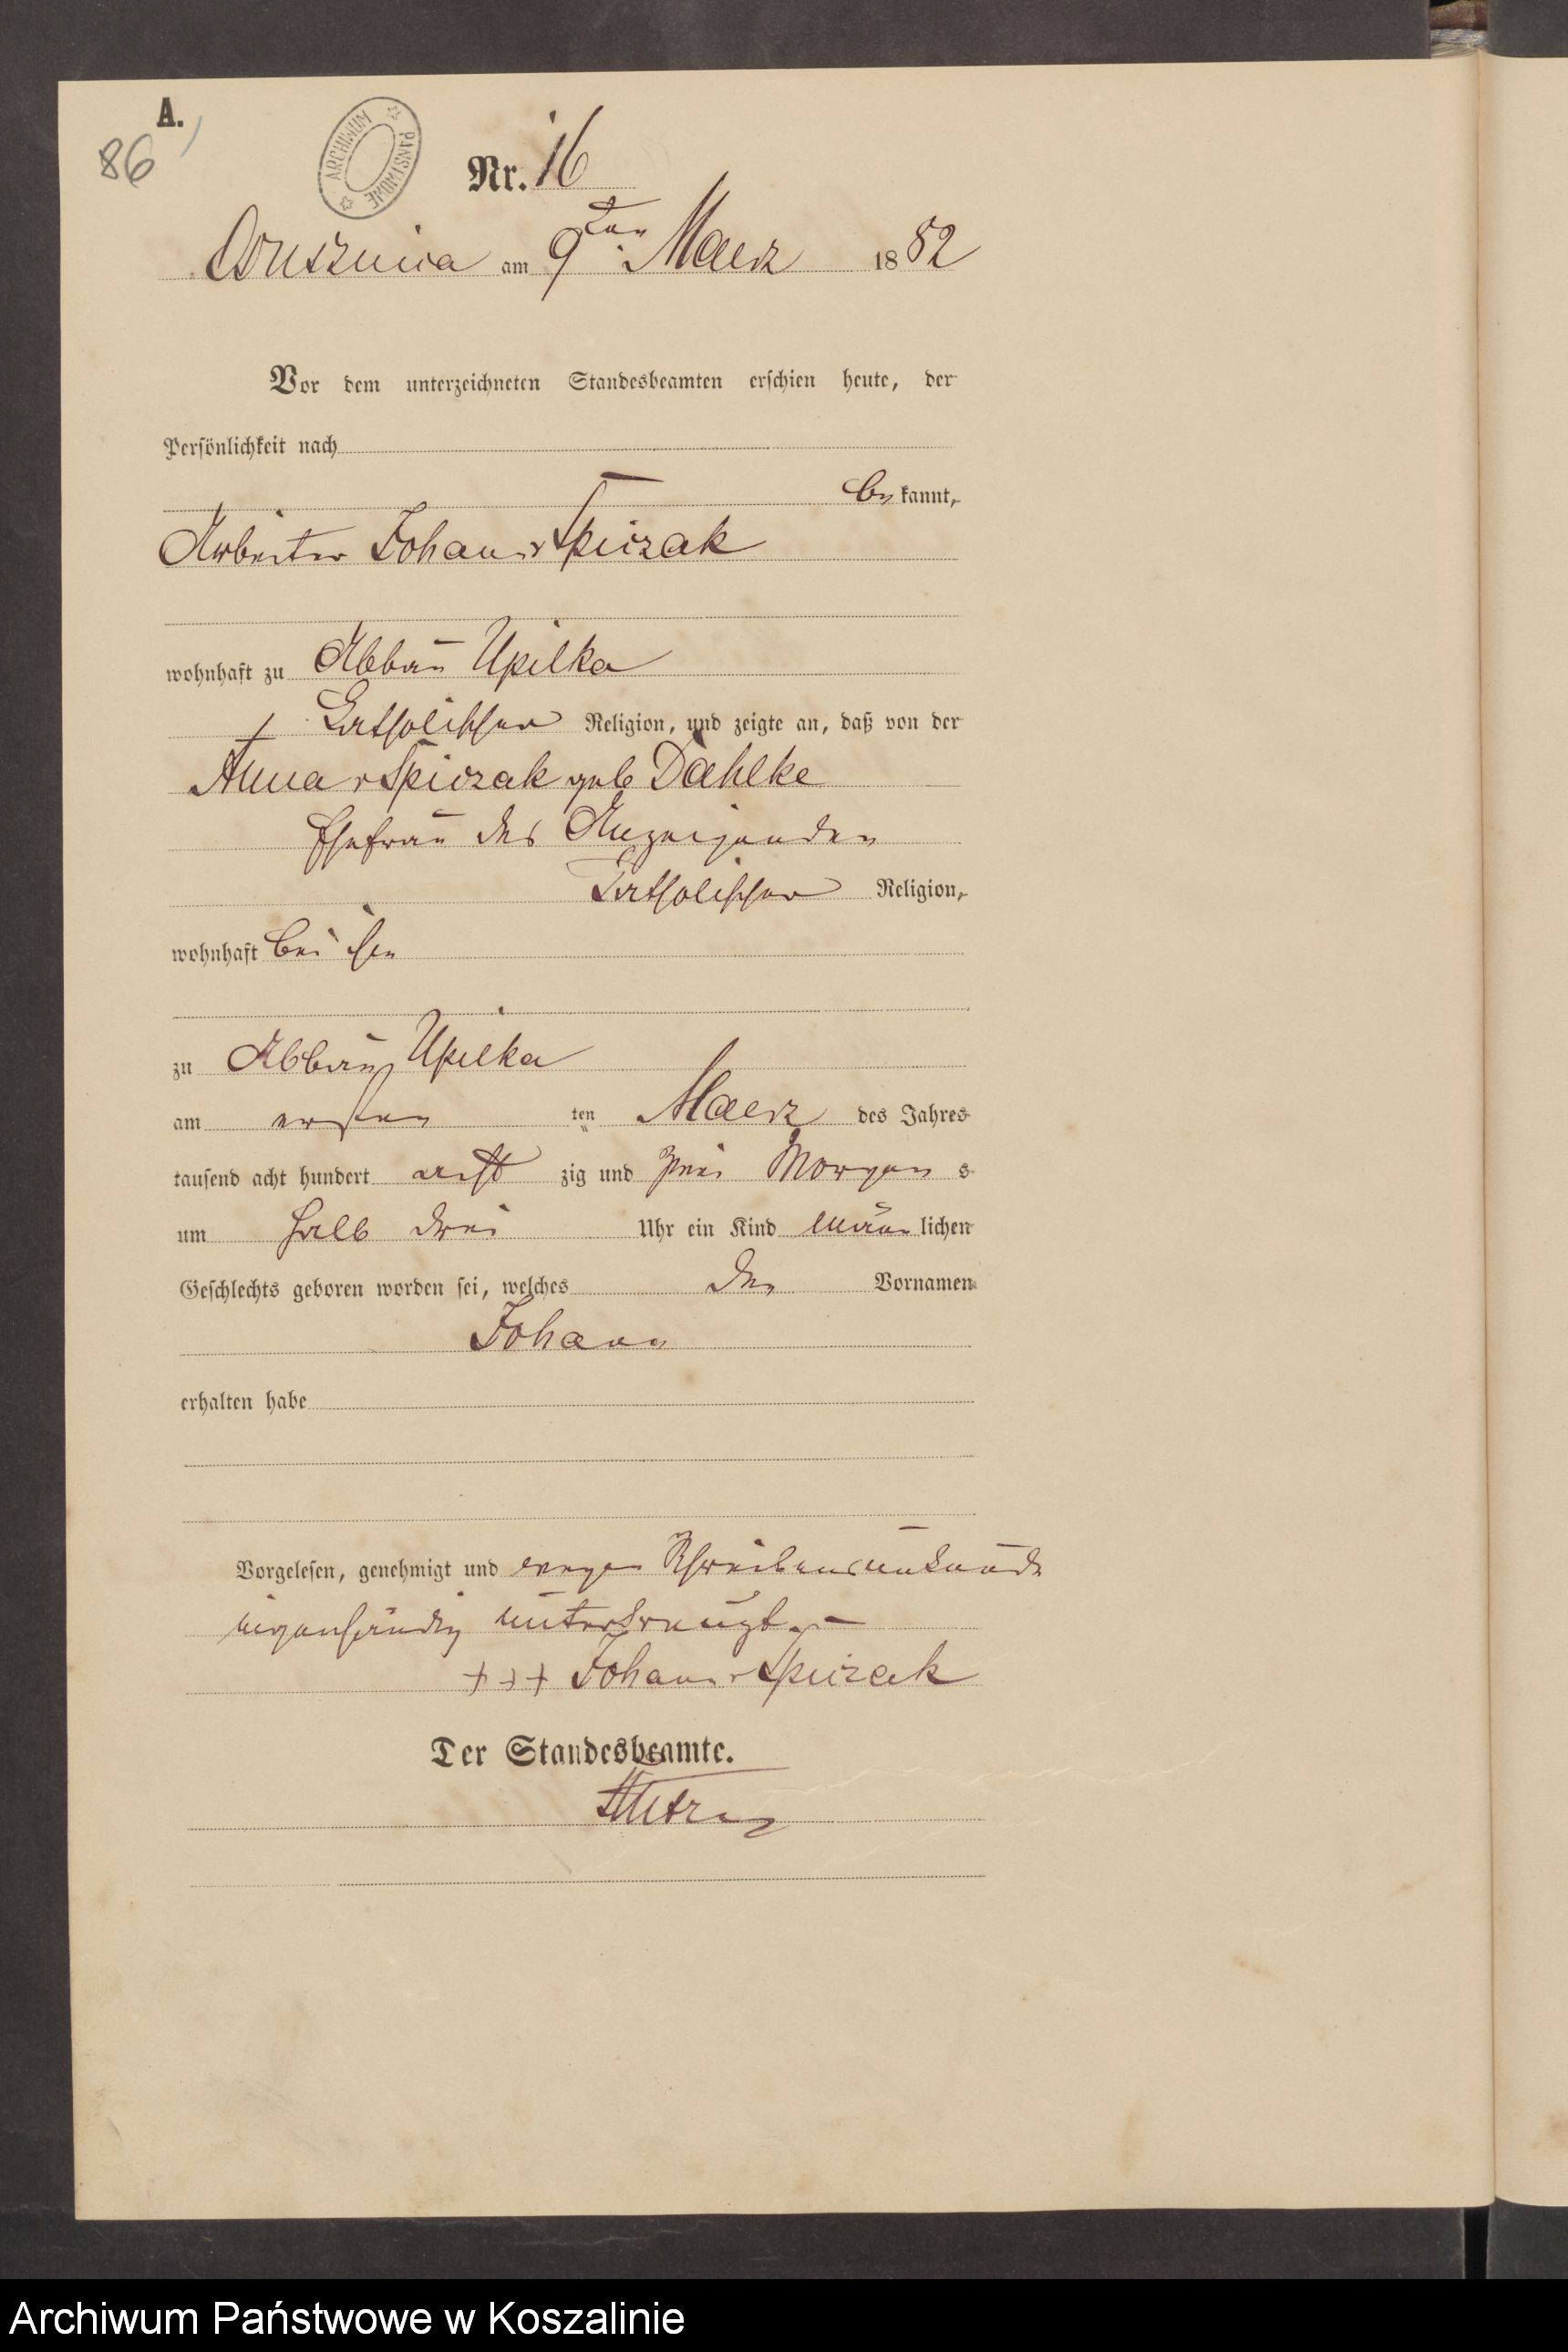 A.
86
ARCHIWUM PAŃSTWOWE
Nr. 16
Ossusznica am 9ten Maerz 1882
Vor dem unterzeichneten Standesbeamten erschien heute, der
Persönlichkeit nach
bekannt,
Arbeiter Johann v Spiczak
wohnhaft zu Abbau Upilka
katholischer Religion, und zeigte an, daß von der
Anna v Spiczak geb Dahlke
Ehefrau des Anzeigenden
katholischer Religion,
wohnhaft bei ihm
zu Abbau Upilka
am ersten ten Maerz des Jahres
tausend acht hundert acht zig und zwei Morgens
um halb drei Uhr ein Kind männlichen
Geschlechts geboren worden sei, welches den Vornamen
Johann
erhalten habe
Vorgelesen, genehmigt und wegen Schreibensunkunde
eigenhändig unterkreuzt
+++ Johann v Spiczak
Der Standesbeamte.
Archiwum Państwowe w Koszalinie